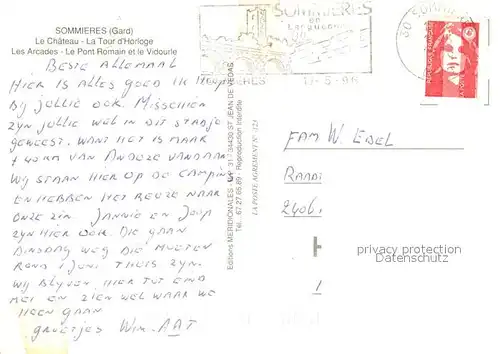 SOMMIERES (Gard)
Le Château - La Tour d'Horloge
Les Arcades - Le Pont Romain et le Vidourle
BESTE ALLEMAAL
HIER IS ALLES GOED IK HOOP
BY JULLIE OOK. MISSCHIEN
ZYN JULLIE WEL IN DIT STADJE
GEWEEST. WANT HET IS MAAR
40 KM VAN ANDUZE VANDAAN
WY STAAN HIER OP DE CAMPING
EN HEBBEN HET REUZE NAAR
ONZE ZIN. JANNIE EN JOOP
ZYN HIER OOK. DIE GAAN
DINSDAG WEG DIE MOETEN
ROND 1 JUNI THUIS ZYN.
WY BLYVEN HIER TOT EIND
MEI EN ZIEN WEL WAAR WE
HEEN GAAN
GROETJES WIM. AAT
Editions MERIDIONALES - 34430 ST JEAN DE VEDAS
Tél. 67 27 65 69 - Reproduction interdite
LA POSTE AGREMENT N° 323
SOMMIERES
en
Languedoc
30 SOMMIERES
REPUBLIQUE FRANÇAISE
FAM W. EDEL
2406
privacy protection
DATENSCHUTZ